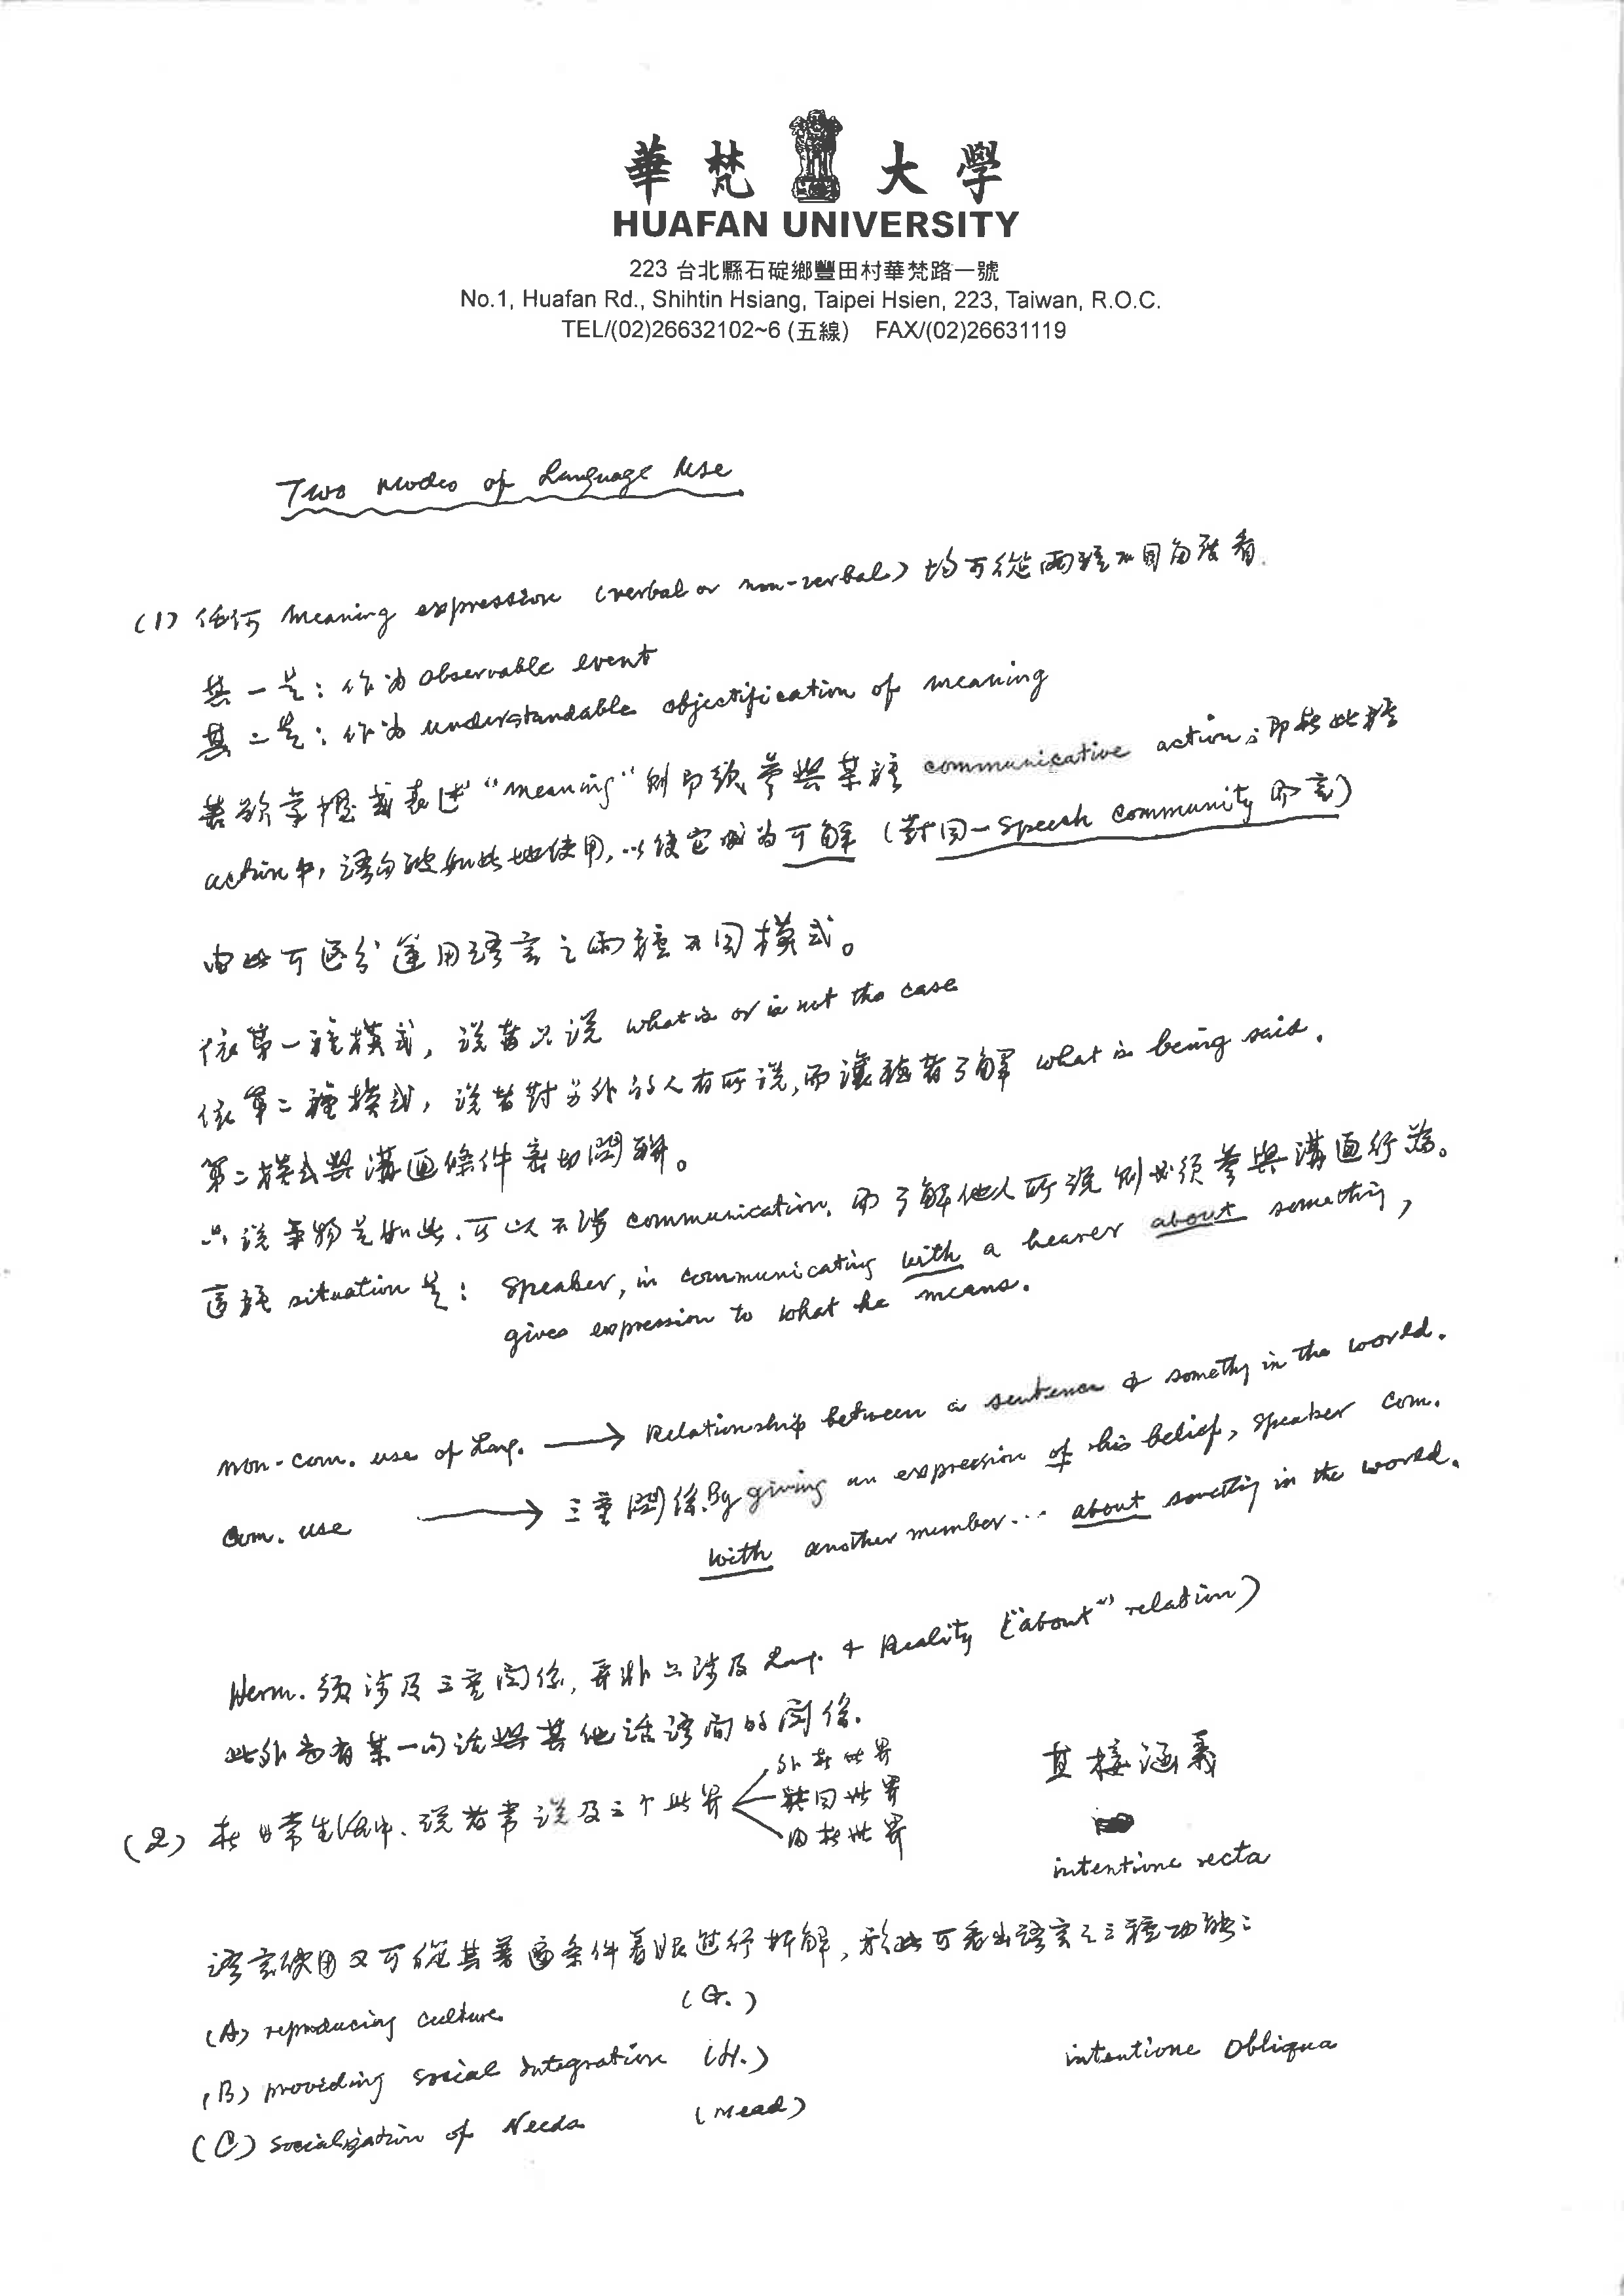 華梵大學
HUAFAN UNIVERSITY
223 台北縣石碇鄉豐田村華梵路一號
No.1, Huafan Rd., Shihtin Hsiang, Taipei Hsien, 223, Taiwan, R.O.C.
TEL/(02)26632102~6 (五線) FAX/(02)26631119
Two Modes of Language Use
(1) 任何 meaning expression (verbal or non-verbal) 均可從兩種不同角度看.
其一是：作為 observable event
其二是：作為 understandable objectification of meaning
若欲掌握或表述 "meaning" 則即須參與某種 communicative action；即在此種
action 中, 語句被如此地使用, 以使它成為可解 (對同一 speech community 而言)
由此可區分運用語言之兩種不同模式。
依第一種模式, 說者只說 what is or is not the case
依第二種模式, 說者對另外的人有所說, 而讓聽者了解 what is being said.
第二模式與溝通條件密切關聯。
只說事物是如此、可以不涉 communication. 而了解他人所說則必須參與溝通行為。
這種 situation 是： Speaker, in communicating with a hearer about something,
gives expression to what he means.
non-com. use of Lang. ⟶ Relationship between a sentence & somethg in the world.
Com. use ⟶ 三重關係. By giving an expression of his belief, speaker com.
with another member... about somethg in the world.
Herm. 須涉及三重関係, 並非只涉及 Lang. & Reality ("about" relation)
此外尚有某一句話與其他話語間的関係.
外在世界
直接涵義
(2) 在日常生活中、說者常說及三个世界
共同世界
內在世界
intentione recta
語言使用又可從其普遍條件着眼進行拆解, 於此可看出語言之三種功能：
(A) reproducing culture (G.)
(B) providing social integration (H.)
intentione obliqua
(C) socialization of Needs (Mead)